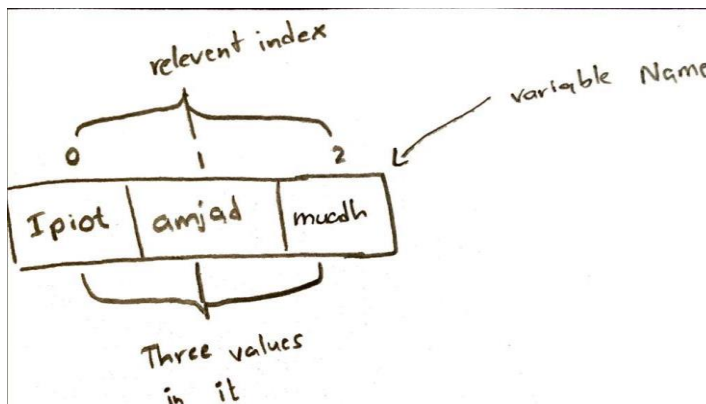 relevent index
variable Name
0 1 2
Ipiot amjad muadh
Three values
in it